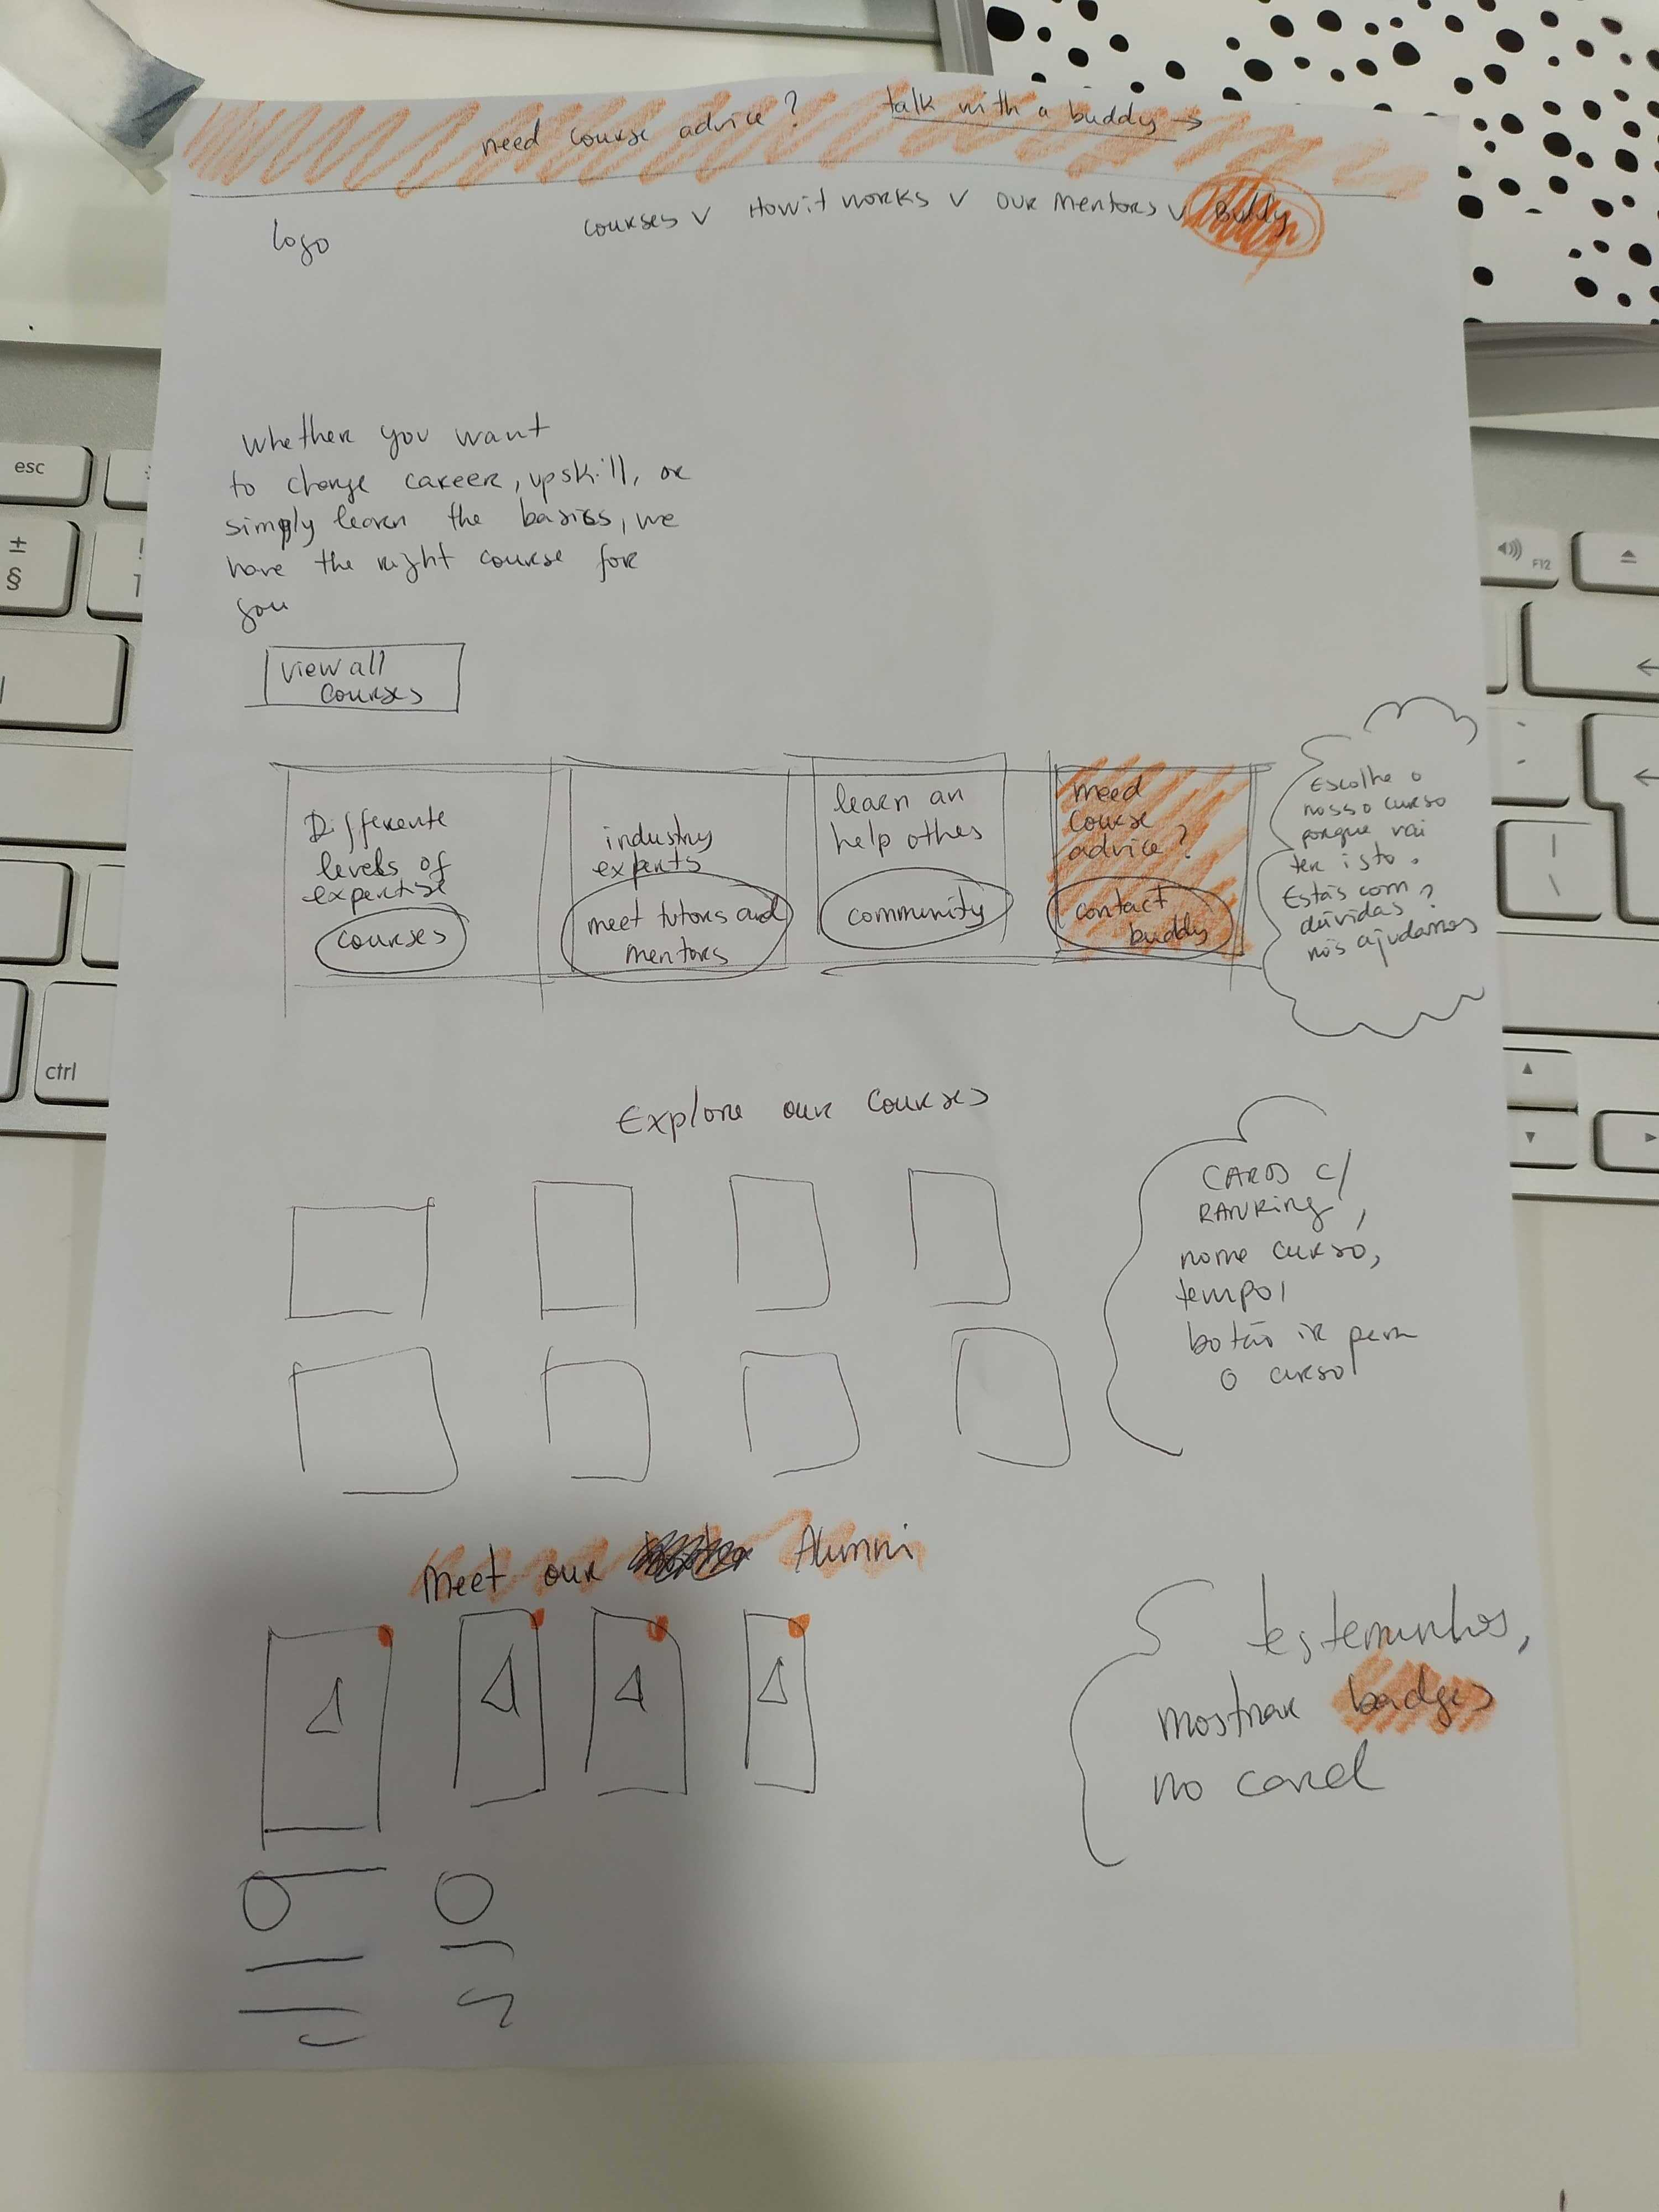 need course advice? talk with a buddy →
logo
courses v How it works v our mentors v Buddy
Whether you want
to change career, upskill, or
simply learn the basics, we
have the right course for
you
view all
courses
Differente
levels of
expertise
courses
industry
experts
meet tutors and
mentors
learn an
help othes
community
need
course
advice?
contact
buddy
Escolhe o
nosso curso
porque vai
ter isto.
Estás com
dúvidas?
nós ajudamos
Explore our courses
CARDS c/
RANKing,
nome curso,
tempo,
botão ir para
o curso
Meet our Alumni
testemunhos,
mostrar badges
no card
esc
±
§
ctrl
F12